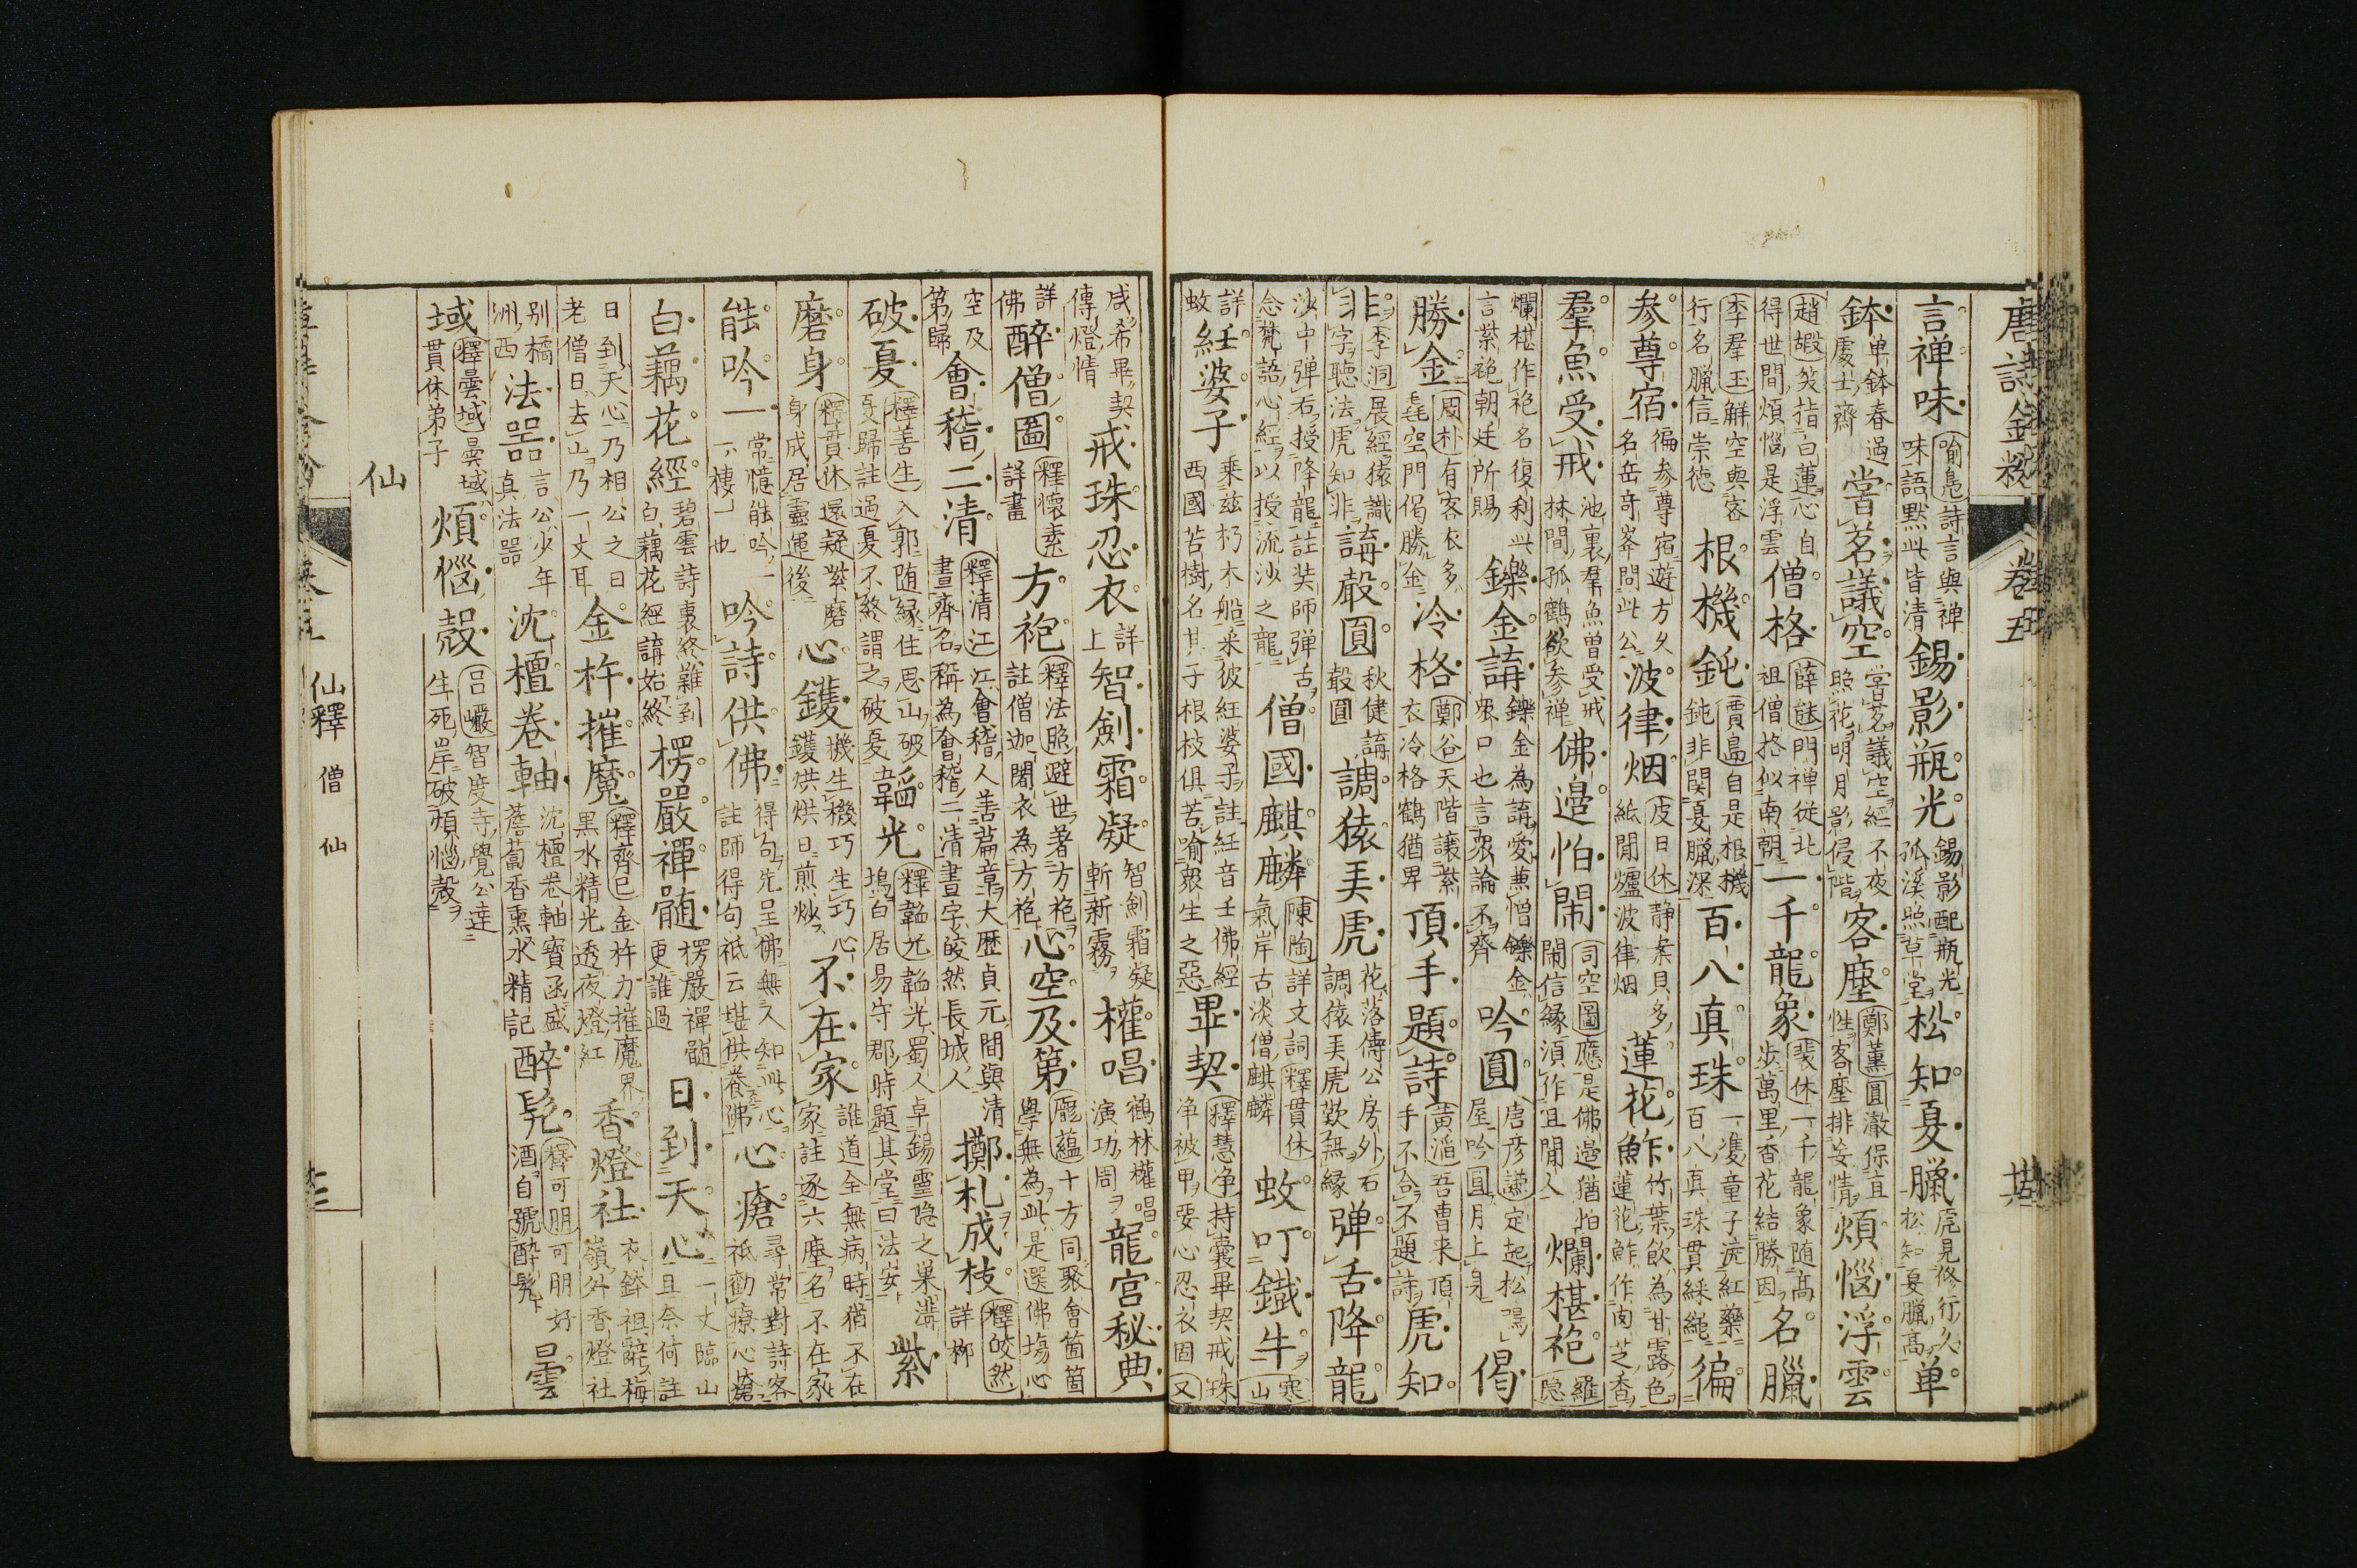 唐詩金粉 卷五
言禅味 喻鳧詩言與禅味語默此皆清 錫影瓶光 錫影配瓶光孤溪照草堂 松知夏臘 虎見修行久松知夏臘高 单
鉢 单鉢春過處士齋 嘗茗議空 嘗茗議空經不夜照花明月影侵階 客塵 鄭薰圓澈保直性客塵排妄情 煩惱浮雲
趙嘏笑指白蓮心自得世間煩惱是浮雲 僧格 薛能門禅從北祖僧格似南朝 一千龍象 裴休一千龍象随高步萬里香花結勝因 名臘
李羣玉解空與客行名臘信崇德 根機鈍 賈島自是根機鈍非関夏臘深 百八真珠 一雙童子澆紅藥百八真珠貫綵繩 徧
参尊宿 徧参尊宿遊方久名岳奇峯問此公 波律烟 皮日休静案貝多紙閒爐波律烟 蓮花鮓 竹葉飲為甘露色蓮花鮓作肉芝香
羣魚受戒 池裏羣魚曽受戒林間孤鶴欲参禅 佛邉怕閙 司空圖應是佛邉猶怕閙信縁湏作且閒人 爛椹袍 羅隐
爛椹作袍名復利此言紫袍朝廷所賜 鑠金講 鑠金為講愛兼僧鑠金衆口也言衆論不齊 吟圓 唐彦謙定起松鳴屋吟圓月上身 偈
勝金 周朴有客衣多毳空門偈勝金 冷格 鄭谷天階讓紫衣冷格鶴猶卑 頂手題詩 黄滔吾曹来頂手不合不題詩 虎知
非 李洞展經猿識字聽法虎知非 講嚴圓 秋健講嚴圓 調猿美虎 花落僧公房外石調猿美虎歎無縁 弹舌降龍
沙中弹舌授降龍註奘師弹舌念梵語心經以授流沙之龍 僧國麒麟 陳陶詳文詞釋貫休氣岸古淡僧麒麟 蚊叮鐵牛 寒山
詳蚊 紝婆子 乗兹朽木船采彼紝婆子註紝音壬佛經西國苦樹名其子根枝俱苦喻衆生之惡 畢契 釋慧净持囊畢契戒珠净被甲要心忍衣固又
咸希畢契傳燈情 戒珠忍衣 詳上 智劍霜凝 智劍霜凝斬新霧 權唱 鶴林權唱演功周 龍宮秘典
詳佛 醉僧圖 釋懷素詳畫 方袍 釋法照避世著方袍註僧迦闍衣為方袍 心空及第 龎蘊十方同聚會箇箇學無為此是選佛塲心
空及第歸 會稽二清 釋清江江會稽人善篇章大歴貞元間與清晝齊名稱為會稽二清晝字皎然長城人 擲札成枝 釋皎然詳栁
破夏 釋善生入郭随縁住思山破夏歸註過夏不終謂之破夏 韜光 釋韜光韜光蜀人卓錫靈隐之巢溝塢白居易守郡時題其堂曰法安 紫
磨身 釋貫休還疑紫磨身成居靈運後 心鑊 機生機巧生巧心鑊烘烘日煎炒 不在家 誰道全無病時猶不在家註逐六塵名不在家
能吟一 常憶能吟一一樓一也 吟詩供佛 得句先呈佛無人知此心註師得句袛云堪供養佛 心瘡 尋常對詩客袛勸療心瘡
白藕花經 碧雲詩裏終難到白藕花經講始終 楞嚴禪髄 楞嚴禪髄更誰過 日到天心 一丈臨山且奈何註
日到天心乃相公之日老僧日去山乃一丈耳 金杵摧魔 釋齊己金杵力摧魔界黒水精光透夜燈紅 香燈社 衣鉢祖辭梅嶺外香燈社
别橘洲西 法噐 言公少年真法噐 沈檀卷軸 沈檀卷軸寳函盛薝蔔香熏水精記 醉髠 釋可朋可朋好酒自號醉髠 曇
域 釋曇域曇域貫休弟子 煩惱殼 吕巖智度寺覺公達生死岸破煩惱殼
仙
仙釋 僧 仙